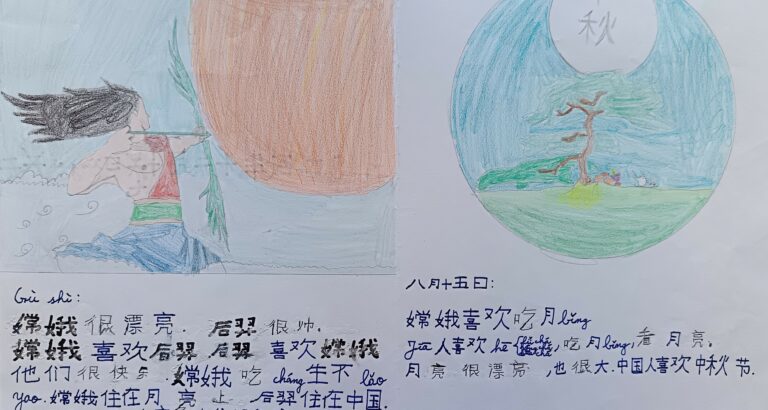 中秋
Gù shì:
嫦娥很漂亮. 后羿很帅.
嫦娥喜欢后羿 后羿 喜欢嫦娥
他们很快乐. 嫦娥吃 cháng 生不 lǎo
yao. 嫦娥住在月亮上. 后羿住在中国.
八月十五日:
嫦娥喜欢吃月bǐng
jiā人喜欢hē, 吃月bǐng, 看月亮.
月亮很漂亮, 也很大. 中国人喜欢中秋节.